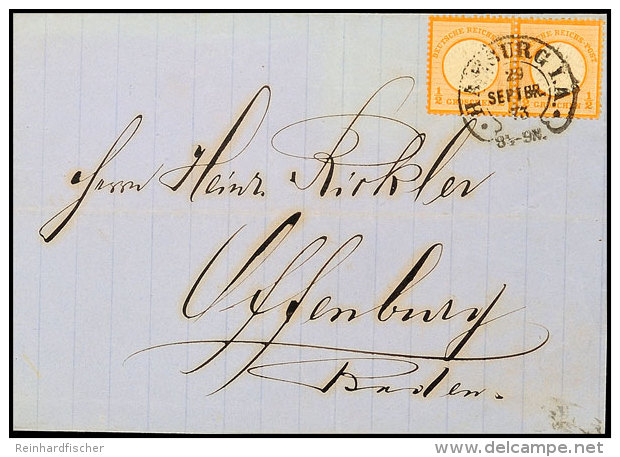 DEUTSCHE REICHS-POST DEUTSCHE REICHS-POST
1/2 GROSCHEN 1/2 GROSCHEN 1/2
HAMBURG I.A.
29
SEPTBR.
73
8½-9N.
Herrn Heinr. Rickler
Offenburg
Baden.
Reinhardfischer
www.delcampe.net